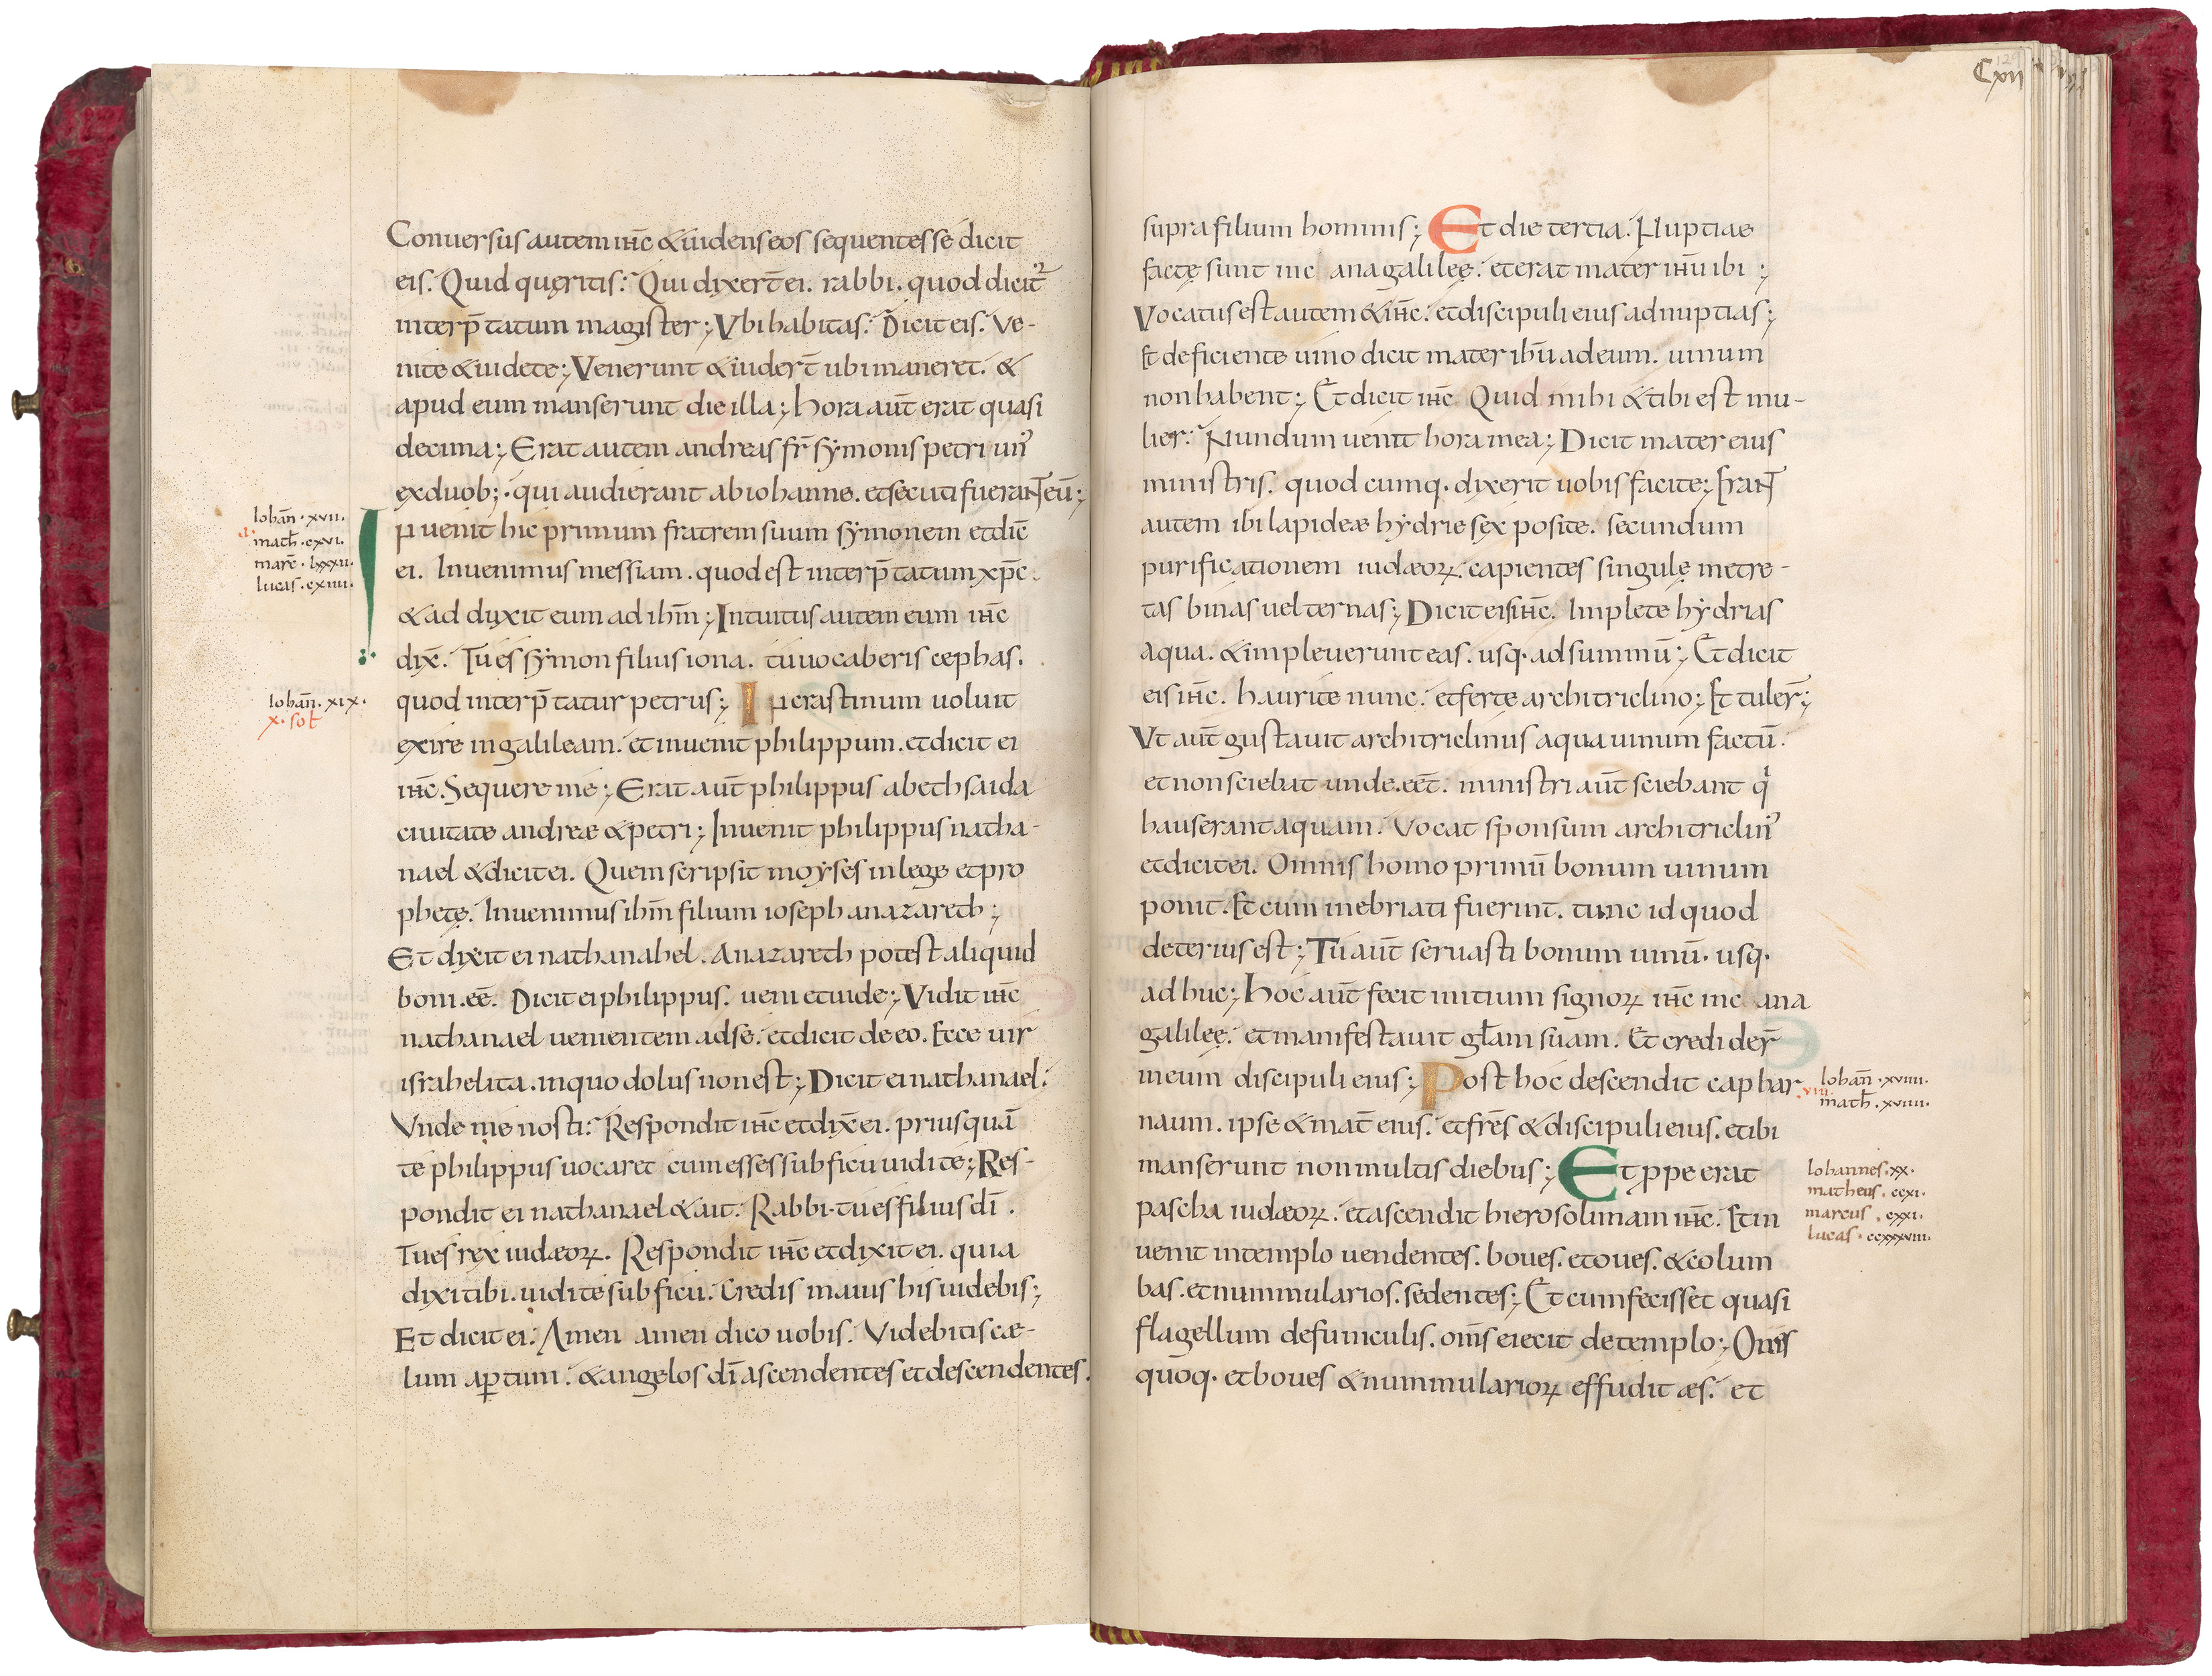 Conuersus autem ihc̄ & uidens eos sequentes se dicit
eis. Quid quęritis. Qui dixer̄t ei. rabbi. quod dicit᷑
interp̄tatum magister; Vbi habitas. Dicit eis. Ve-
nite & uidete; Venerunt & uider̄t ubi maneret. &
apud eum manserunt die illa; hora aut̄ erat quasi
decima; Erat autem andreas fr̄ sẏmonis petri un᾽
ex duob;. qui audierant ab iohanne. et secuti fuerant eū;
Inuenit hic primum fratrem suum sẏmonem et dic̄
ei. Inuenimus messiam. quod est interp̄tatum xp̄c.
& ad duxit eum ad ihm̄; Intuitus autem eum ihc̄
dix̄. Tu es sẏmon filius iona. tu uocaberis cephas.
quod interp̄tatur petrus; In crastinum uoluit
exire in galileam. et inuenit philippum. et dicit ei
ihc̄. Sequere me; Erat aut̄ philippus a bethsaida
ciuitate andreæ & petri; Inuenit philippus natha-
nael & dicit ei. Quem scripsit moẏses in lege et pro
phetę. Inuenimus ihm̄ filium ioseph a nazareth;
Et dixit ei nathanahel. A nazareth potest aliquid
boni. eē. Dicit ei philippus. ueni et uide; Vidit ihc̄
nathanael uenientem ad se. et dicit de eo. Ecce uir
israhelita. in quo dolus non est; Dicit ei nathanael.
Vnde me nosti. Respondit ihc̄ et dix̄ ei. prius quā
te philippus uocaret cum esses sub ficu uidi te; Res-
pondit ei nathanael & ait. Rabbi. tu es filius dī.
Tu es rex iudæoꝝ. Respondit ihc̄ et dixit ei. quia
dixi tibi. uidi te sub ficu. Credis maius his uidebis;
Et dicit ei. Amen amen dico uobis. Videbitis cæ-
lum aꝑtum. & angelos dī ascendentes et descendentes.
Iohan̄. xvii.
math̄. cxvi.
marc̄. lxxxii.
lucas. cxiiii.
Iohan̄. xix.
x. sol̄
Cxii
supra filium hominis; Et die tertia. Nuptiae
factę sunt in c ana galileę. et erat mater ihū ibi;
Vocatus est autem & ihc̄. et discipuli eius ad nuptias;
Et deficiente uino dicit mater ihū ad eum. uinum
non habent; Et dicit ihc̄ Quid mihi & tibi est mu-
lier. Nundum uenit hora mea; Dicit mater eius
ministris. quod cumq. dixerit uobis facite; Erant
autem ibi lapideæ hẏdrie sex posite. secundum
purificationem iudæoꝝ. capientes singulę metre-
tas binas uel ternas; Dicit eis ihc̄. Implete hẏdrias
aqua. & impleuerunt eas. usq. ad summū; Et dicit
eis ihc̄. haurite nunc. et ferte architriclino; Et tuler̄;
Vt aut̄ gustauit architriclinus aqua uinum factū.
et non sciebat unde. eēt. ministri aut̄ sciebant qⁱ
hauserant aquam. Vocat sponsum architriclin᾽
et dicit ei. Omnis homo primū bonum uinum
ponit. Et cum inebriati fuerint. tunc id quod
deterius est; Tu aut̄ seruasti bonum uinū. usq.
ad huc; hoc aut̄ fecit initium signoꝝ ihc̄ in c ana
galileę. et manifestauit gl̄am suam. Et credider̄
in eum discipuli eius; Post hoc descendit caphar
naum. ipse & mat̄ eius. et fr̄es & discipuli eius. et ibi
manserunt non multis diebus; Et ꝓpe erat
pascha iudæoꝝ. et ascendit hierosolimam ihc̄. Et in
uenit in templo uendentes. boues. et oues. & colum
bas. et nummularios. sedentes; Et cum fecisset quasi
flagellum de funiculis. om̄s eiecit de templo; Oues
quoq. et boues & nummularioꝝ effudit æs. et
Iohan̄. xviiii.
viii.
math̄. xviiii.
Iohannes. xx.
matheus. ccxi.
marcus. cxxi.
lucas. ccxxxviii.